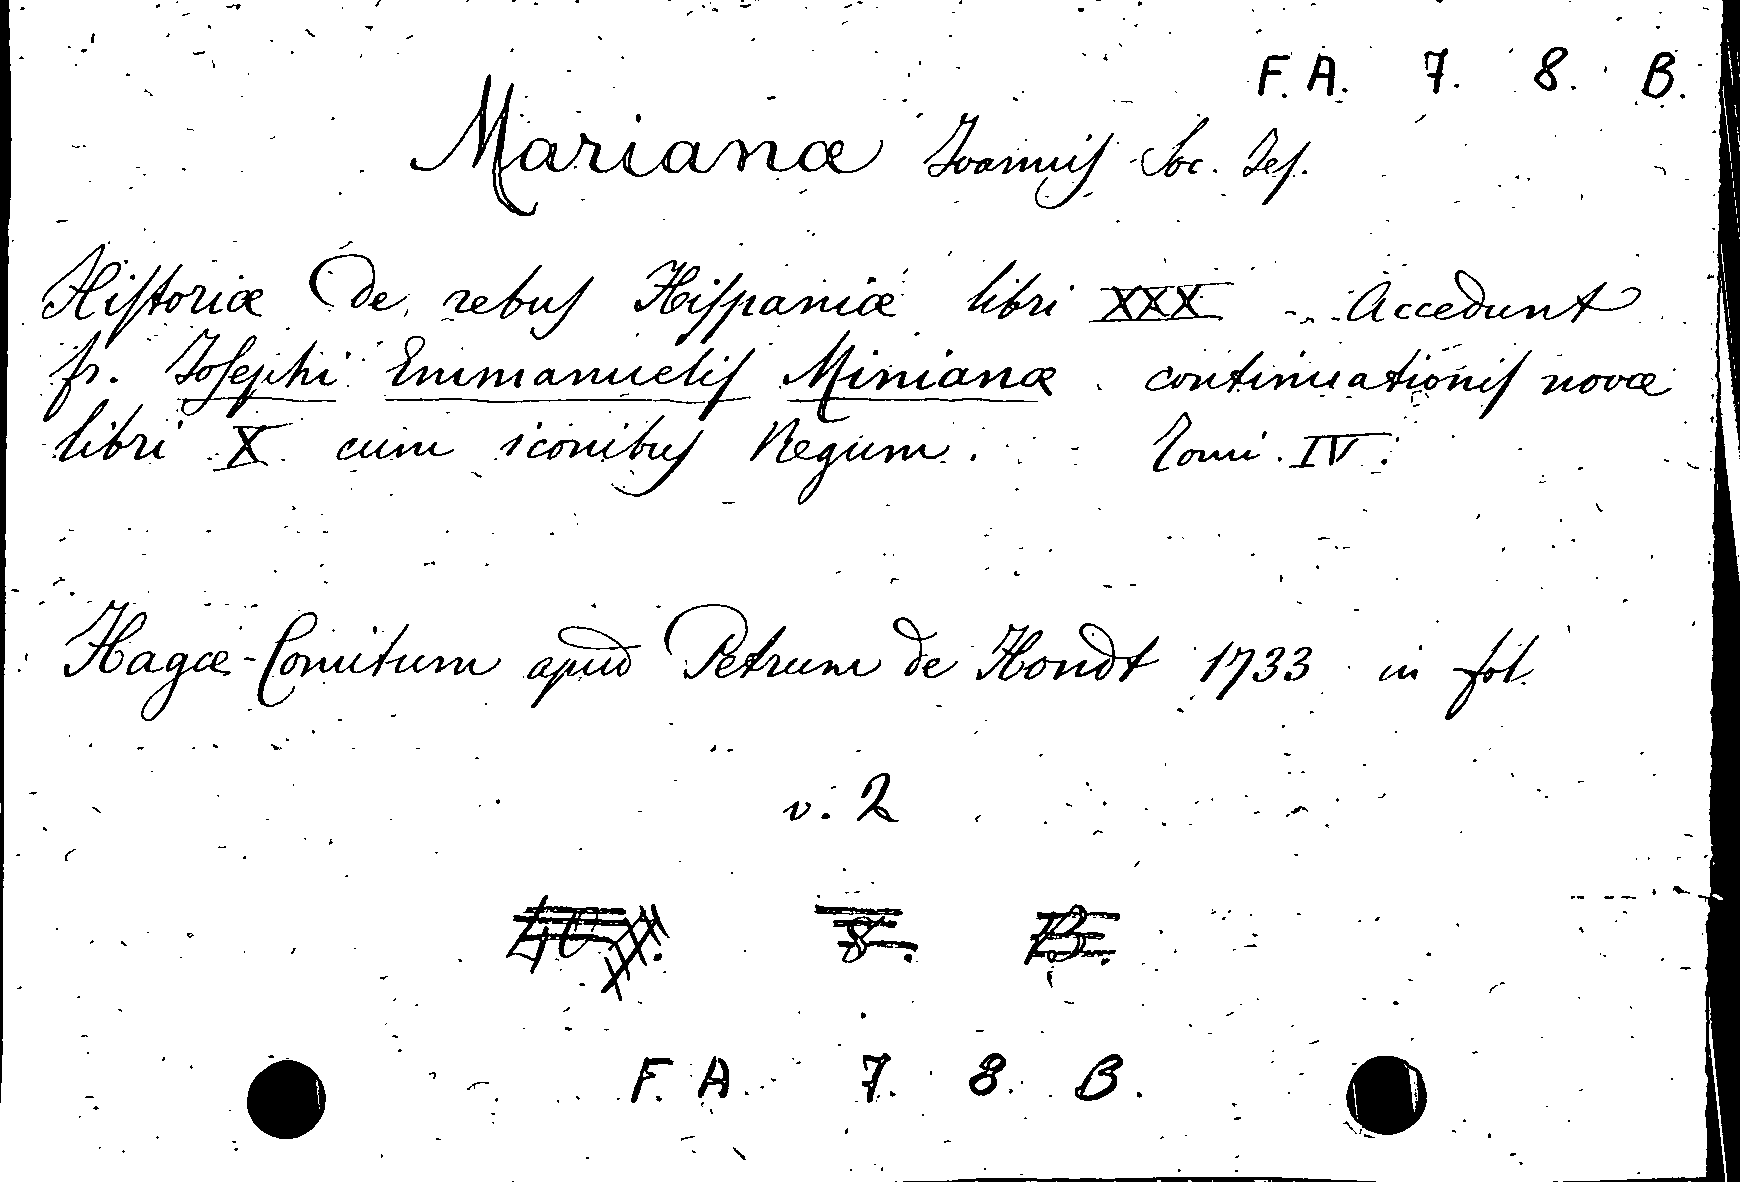 F. A. 7. 8. B.
Marianæ Joannis Soc. Jes.
Historiæ de rebus Hispaniæ libri XXX ... Accedunt
fr. Josephi Emmanuelis Minianæ continuationis novæ
libri X cum iconibus Regum. Tomi IV.
Hagæ-Comitum apud Petrum de Hondt 1733 in fol.
v. 2
8. B.
F. A. 7. 8. B.